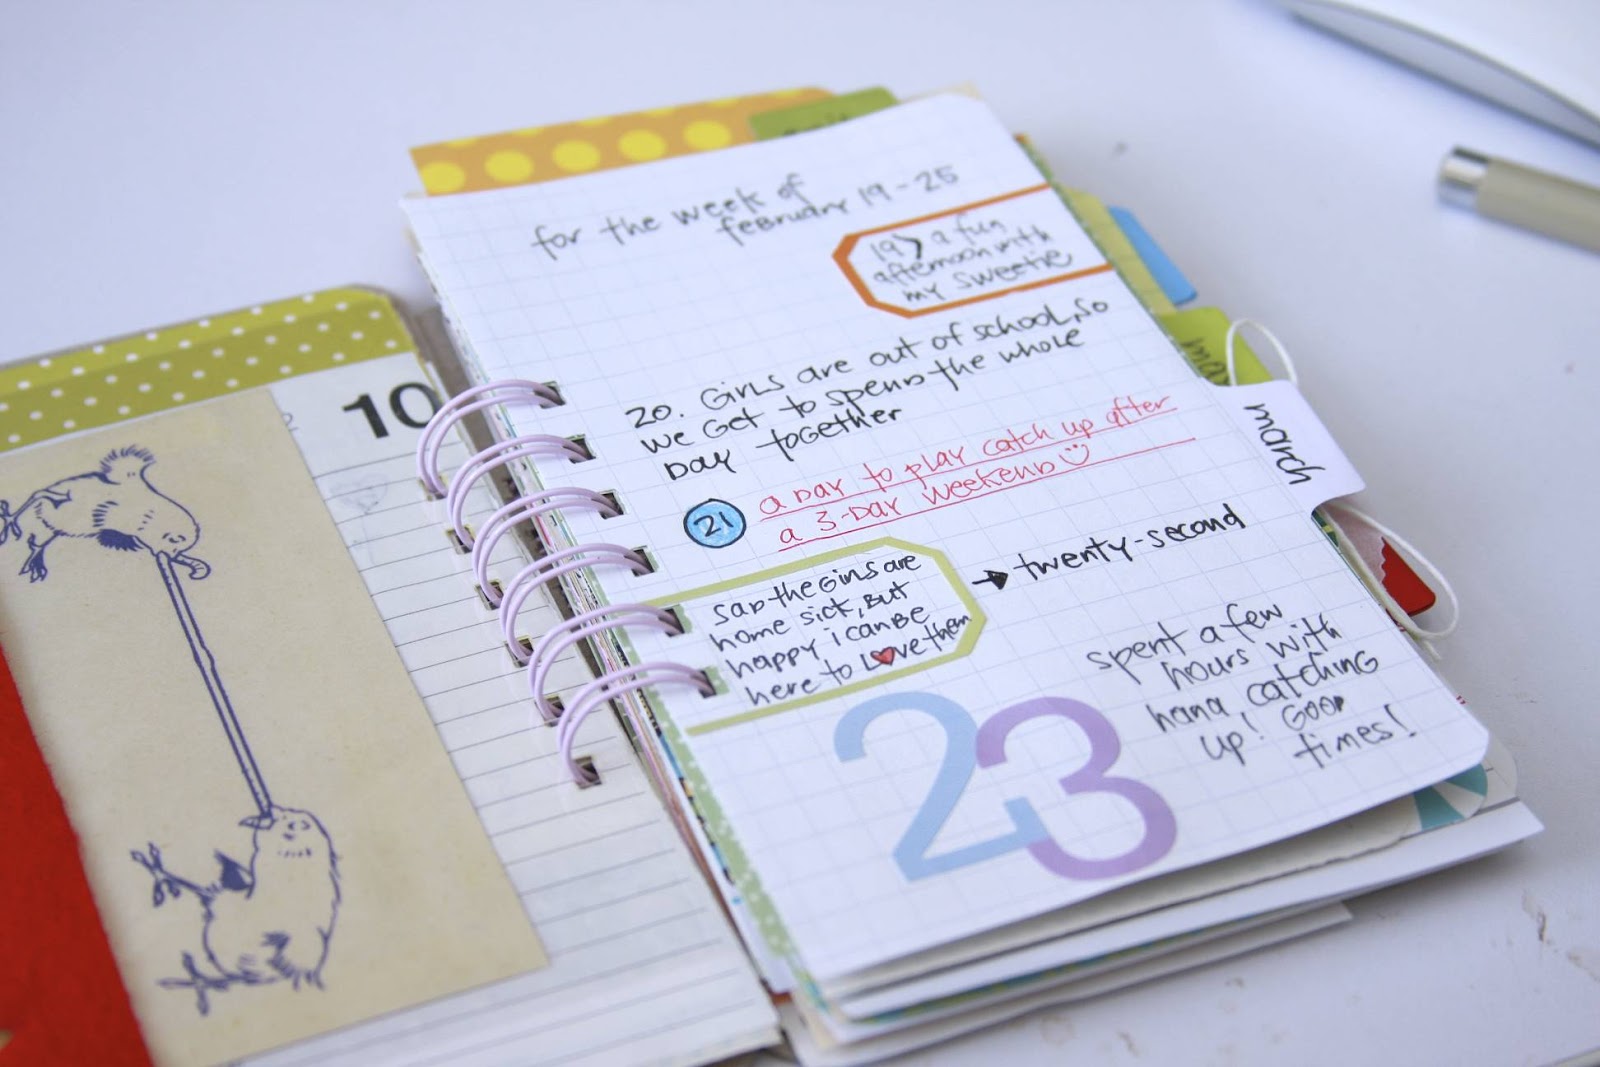 10
for the week of
february 19-25
19> a fun
afternoon with
my sweetie
20. Girls are out of school, so
we get to spend the whole
day together
21 a day to play catch up after
a 3-day weekend
→ twenty-second
sad the girls are
home sick, but
happy i can be
here to love them
23
spent a few
hours with
hana, catching
up! Good
times!
mar
march